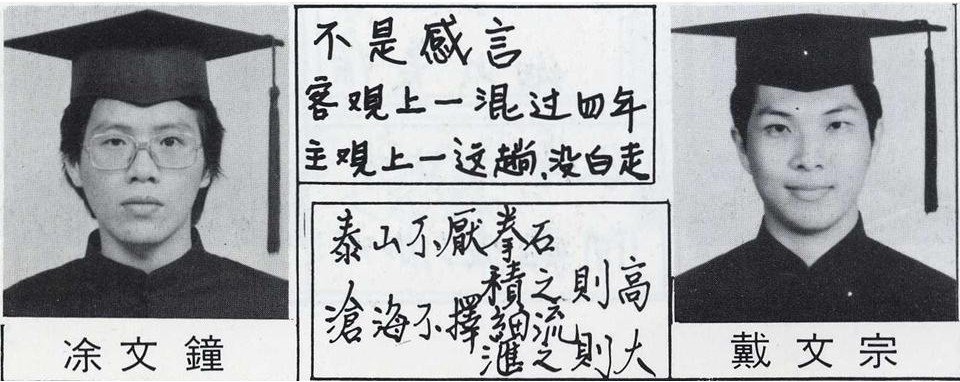 不是感言
客观上一混过四年
主观上一这趟、没白走
泰山不厭拳石
積之則高
滄海不擇細流
滙之則大
凃文鐘
戴文宗